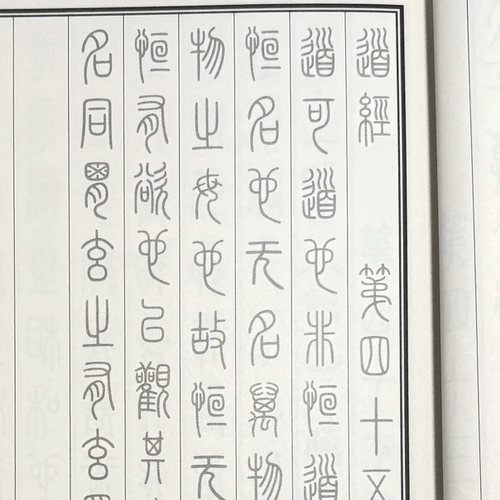 道經 第四十五
道可道也非恒道
恒名也无名萬物
物之母也故恒无
恒有欲也以觀其
名同胃玄之有玄